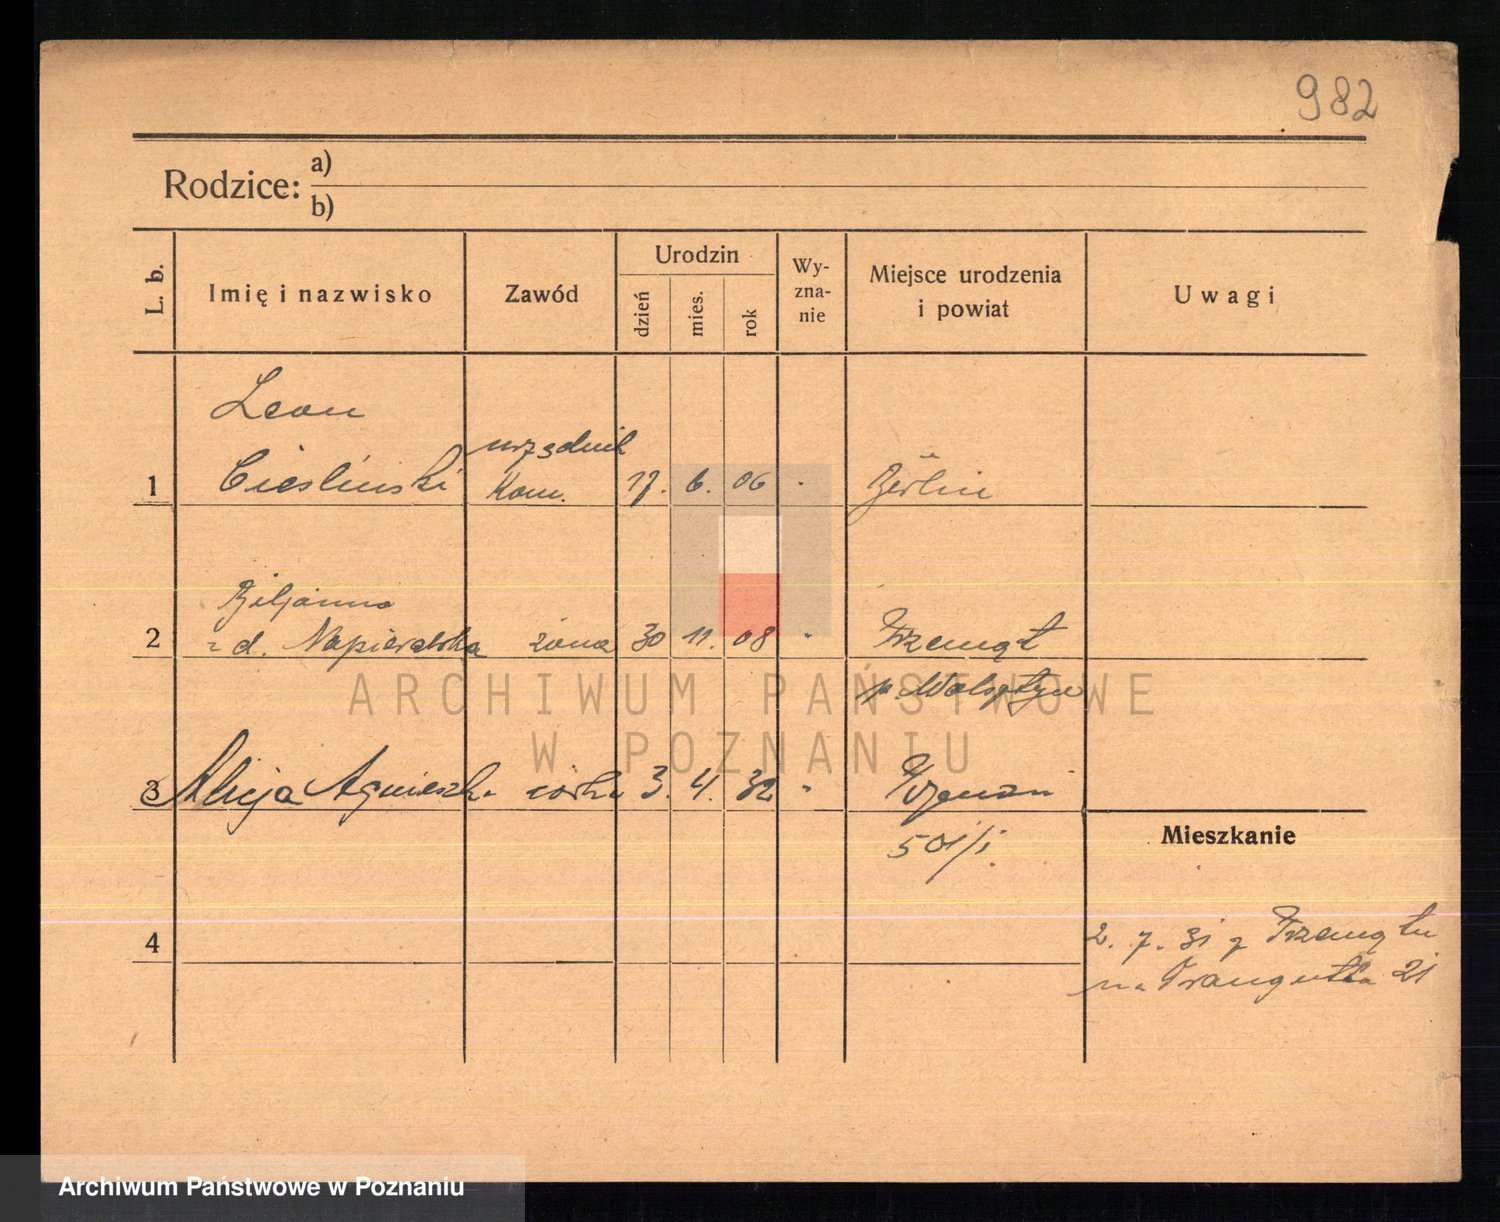 982
Rodzice:
a)
b)
L. b.
Imię i nazwisko
Zawód
Urodzin
dzień
mies.
rok
Wy-
zna-
nie
Miejsce urodzenia
i powiat
Uwagi
Leon
1 Cieśliński urzędnik Kom. 17. 6. 06 Berlin
2 z d. Napieralska żona 30 11. 08 " Przemęt
p. Wolsztyn
3 Alicja Agnieszka córka 3. 4. 32 " Poznań
501/
Mieszkanie
4
2. 7. 31 z Przemętu
na 21
ARCHIWUM PAŃSTWOWE
W POZNANIU
Archiwum Państwowe w Poznaniu